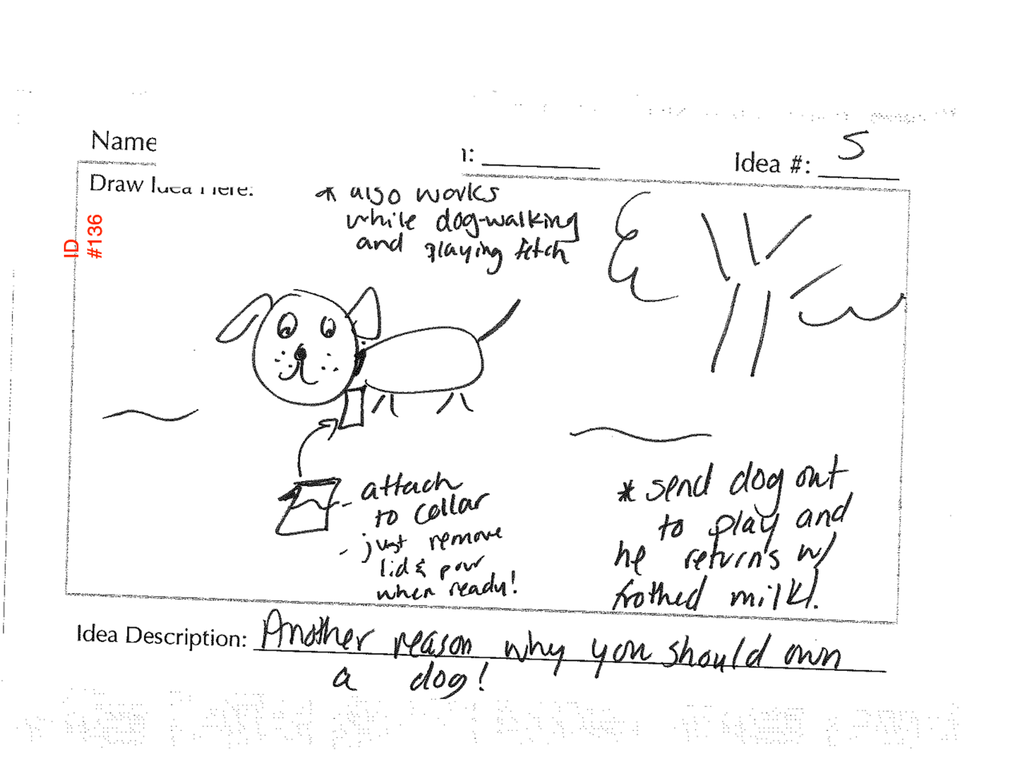 Name
Idea #: 5
Draw Idea Here:
ID
#136
* also works
while dog-walking
and playing fetch
- attach
to collar
- just remove
lid & pour
when ready!
* send dog out
to play and
he returns w/
frothed milk!
Idea Description: Another reason why you should own
a dog!